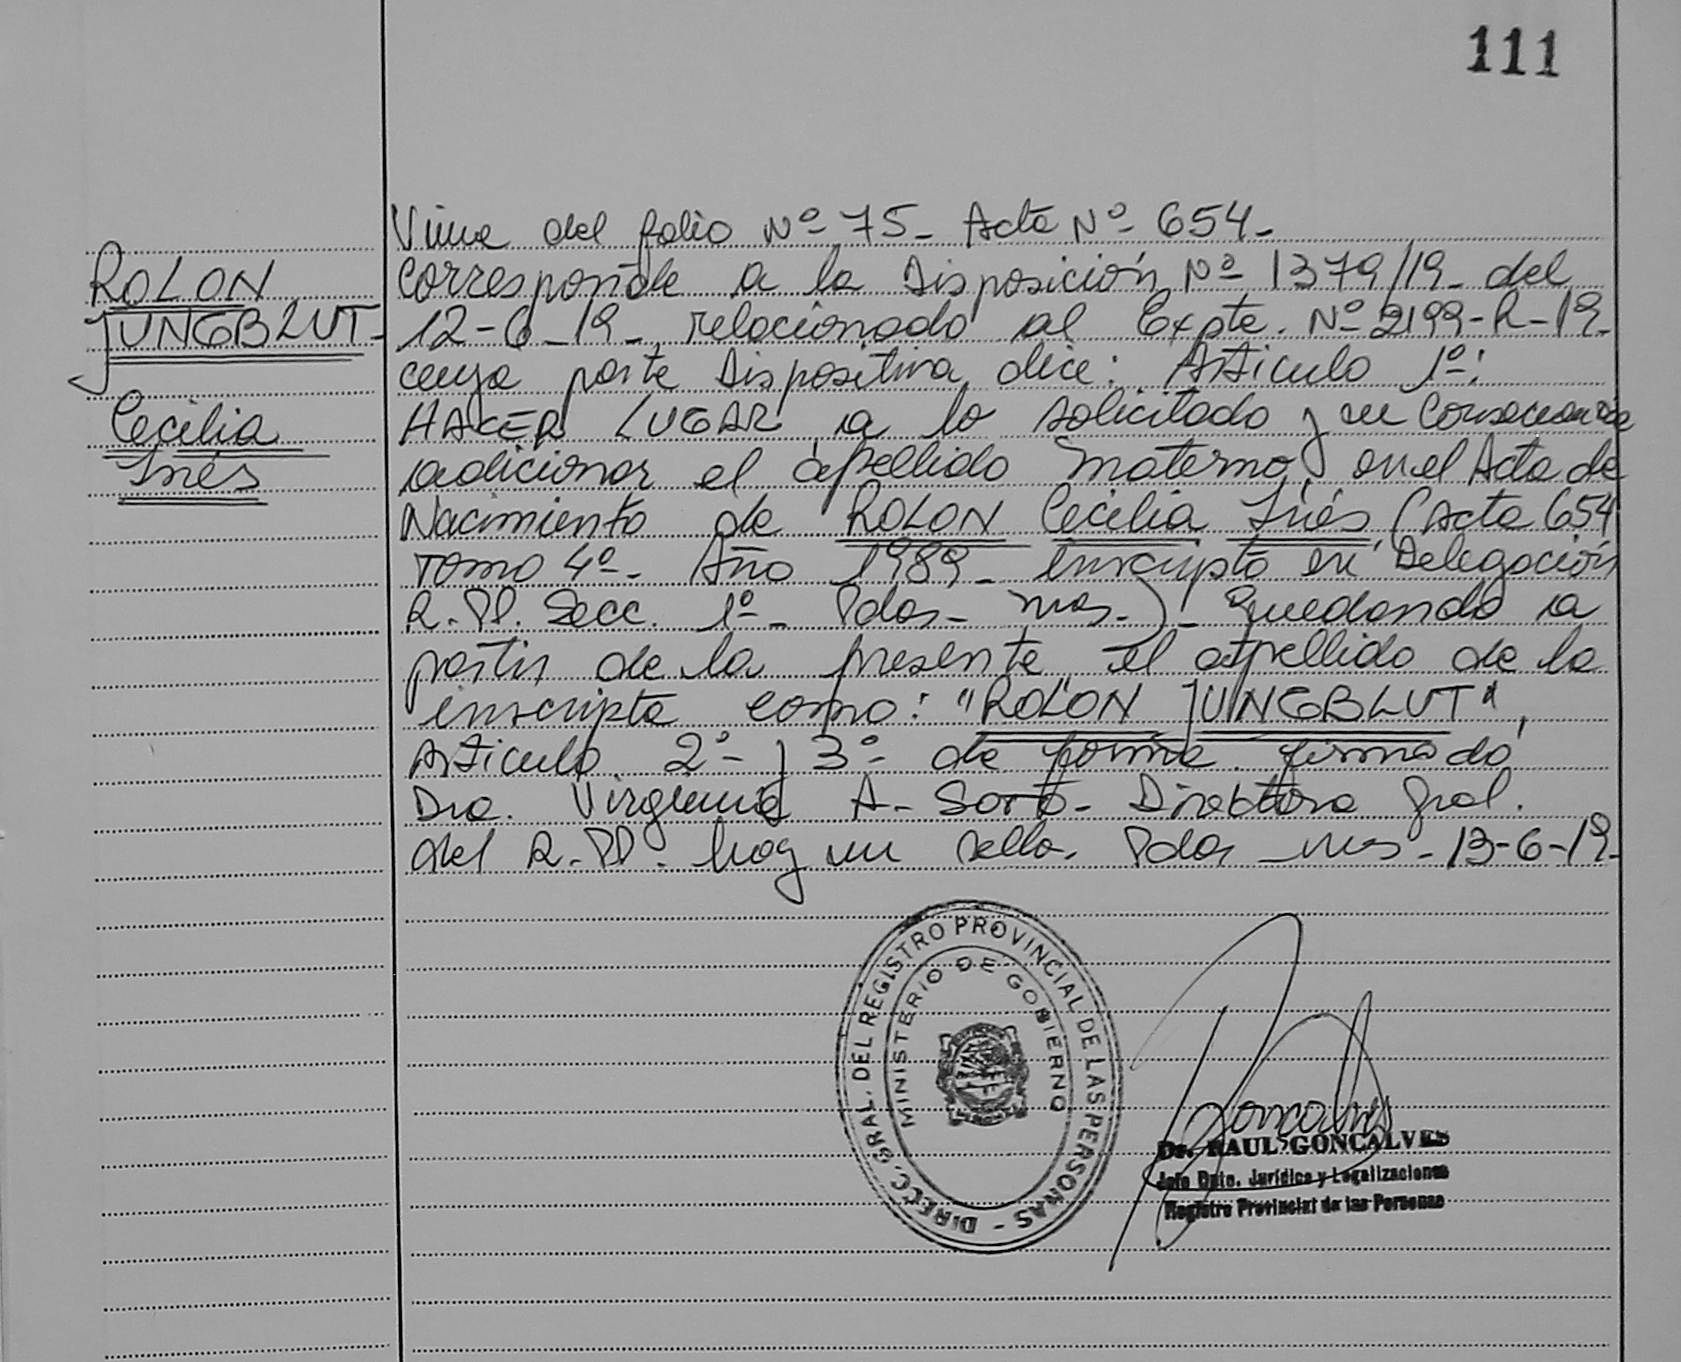 111
ROLON
JUNGBLUT-
Cecilia
Inés
Viene del folio Nº 75- Acta Nº 654-
Corresponde a la Disposición Nº 1379/19- del
12-6-19- relacionado al Expte. Nº 2199-R-19-
cuya parte Dispositiva dice: Articulo 1º:
HACER LUGAR a lo solicitado y en Consecuencia
adicionar el apellido materno, en el Acta de
Nacimiento de ROLON Cecilia Inés (Acta 654
Tomo 4º- Año 1989- inscripta en Delegación
R.PP. Secc. 1º- Pdas- Mnes-)- Quedando a
partir de la presente el apellido de la
inscripta como: "ROLON JUNGBLUT",
Articulo 2º- y 3º- de forma firmado
Dra. Virginia A- Soto- Directora Gral.
del R.PP. hay un sello. Pdas Mnes- 13-6-19-
DIRECC. GRAL. DEL REGISTRO PROVINCIAL DE LAS PERSONAS -
MINISTERIO DE GOBIERNO
Dr. RAUL GONCALVES
Jefe Dpto. Jurídico y Legalizaciones
Registro Provincial de las Personas